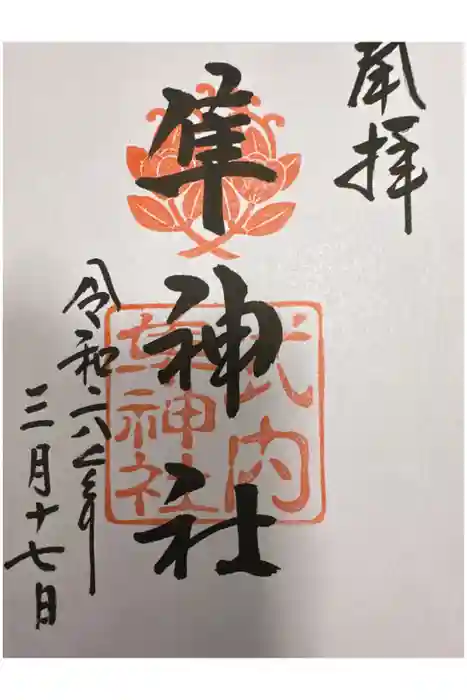 奉拝
隼神社
式内
隼神社
令和
三月十七日